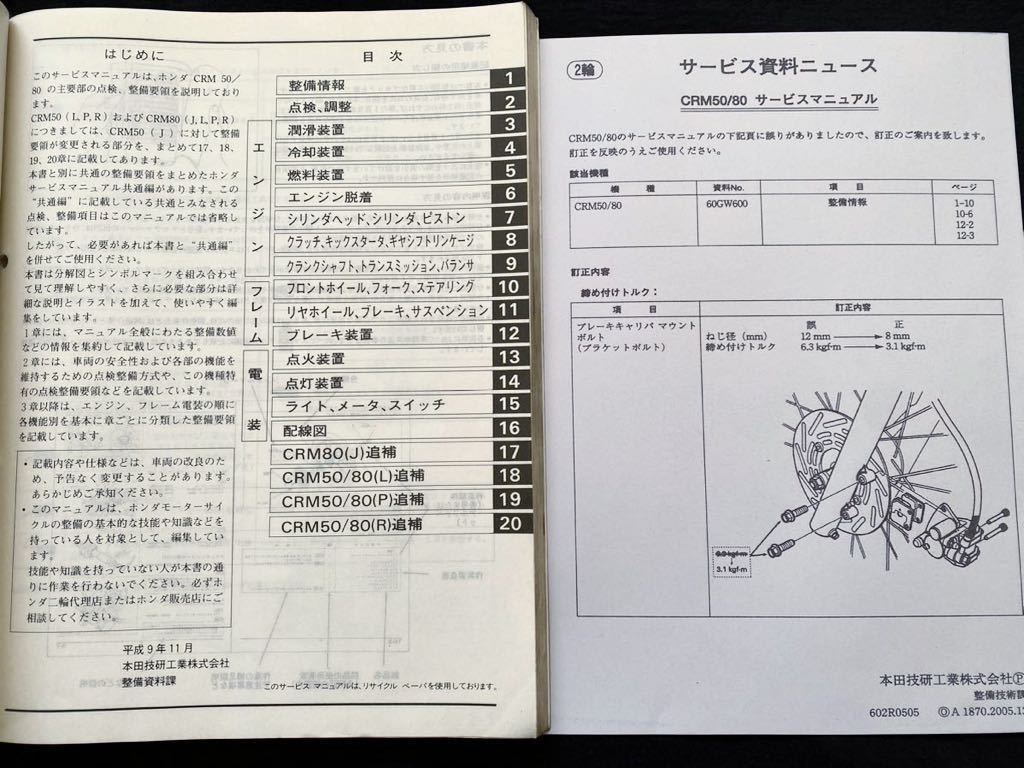 はじめに
このサービスマニュアルは、ホンダ CRM 50/
80 の主要部の点検、整備要領を説明しており
ます。
CRM50 (L, P, R) およびCRM80 (J, L, P, R)
につきましては、CRM50 ( J ) に対して整備
要領が変更される部分を、まとめて17、18、
19、20章に記載してあります。
本書と別に共通の整備要領をまとめたホンダ
サービスマニュアル共通編があります。この
“共通編” に記載している共通とみなされる
点検、整備項目はこのマニュアルでは省略し
ています。
したがって、必要があれば本書と “共通編”
を併せてご使用ください。
本書は分解図とシンボルマークを組み合わせ
て見て理解しやすく、さらに必要な部分は詳
細な説明とイラストを加えて、使いやすく編
集をしています。
1 章には、マニュアル全般にわたる整備数値
などの情報を集約して記載しています。
2 章には、車両の安全性および各部の機能を
維持するための点検整備方式や、この機種特
有の点検整備要領などを記載しています。
3 章以降は、エンジン、フレーム電装の順に
各機能別を基本に章ごとに分類した整備要領
を記載しています。
・記載内容や仕様などは、車両の改良のた
め、予告なく変更することがあります。
あらかじめご承知ください。
・このマニュアルは、ホンダモーターサイ
クルの整備の基本的な技能や知識などを
持っている人を対象として、編集してい
ます。
技能や知識を持っていない人が本書の通
りに作業を行わないでください。必ずホ
ンダ二輪代理店またはホンダ販売店にご
相談してください。
平成 9 年 11 月
本田技研工業株式会社
整備資料課
目 次
整備情報 1
点検、調整 2
エンジン
潤滑装置 3
冷却装置 4
燃料装置 5
エンジン脱着 6
シリンダヘッド、シリンダ、ピストン 7
クラッチ、キックスタータ、ギヤシフトリンケージ 8
クランクシャフト、トランスミッション、バランサ 9
フレーム
フロントホイール、フォーク、ステアリング 10
リヤホイール、ブレーキ、サスペンション 11
ブレーキ装置 12
電装
点火装置 13
点灯装置 14
ライト、メータ、スイッチ 15
配線図 16
CRM80(J)追補 17
CRM50/80(L)追補 18
CRM50/80(P)追補 19
CRM50/80(R)追補 20
このサービス マニュアルは、リサイクル ペーパを使用しております。
2輪
サービス資料ニュース
CRM50/80 サービスマニュアル
CRM50/80のサービスマニュアルの下記頁に誤りがありましたので、訂正のご案内を致します。
訂正を反映のうえご使用ください。
該当機種
機 種 資料No. 項 目 ページ
CRM50/80 60GW600 整備情報 1-10
10-6
12-2
12-3
訂正内容
締め付けトルク：
項 目 訂正内容
ブレーキキャリパ マウント 誤 正
ボルト ねじ径 (mm) 12 mm → 8 mm
(ブラケットボルト) 締め付けトルク 6.3 kgf-m → 3.1 kgf-m
3.1 kgf-m
本田技研工業株式会社Ⓟ
整備技術課
602R0505 ⓄA 1870.2005.1